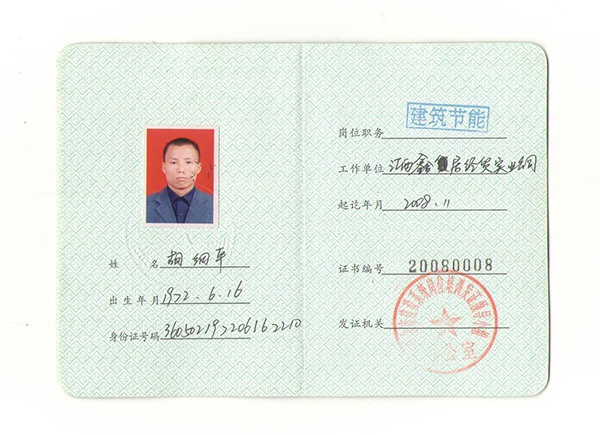 姓 名 胡细平
出生年月 1972.6.16
身份证号码 360502197206162210
建筑节能
岗位职务
工作单位 江西鑫 居经贸实业
起论年月 2008.11
证书编号 20080008
发证机关
公室